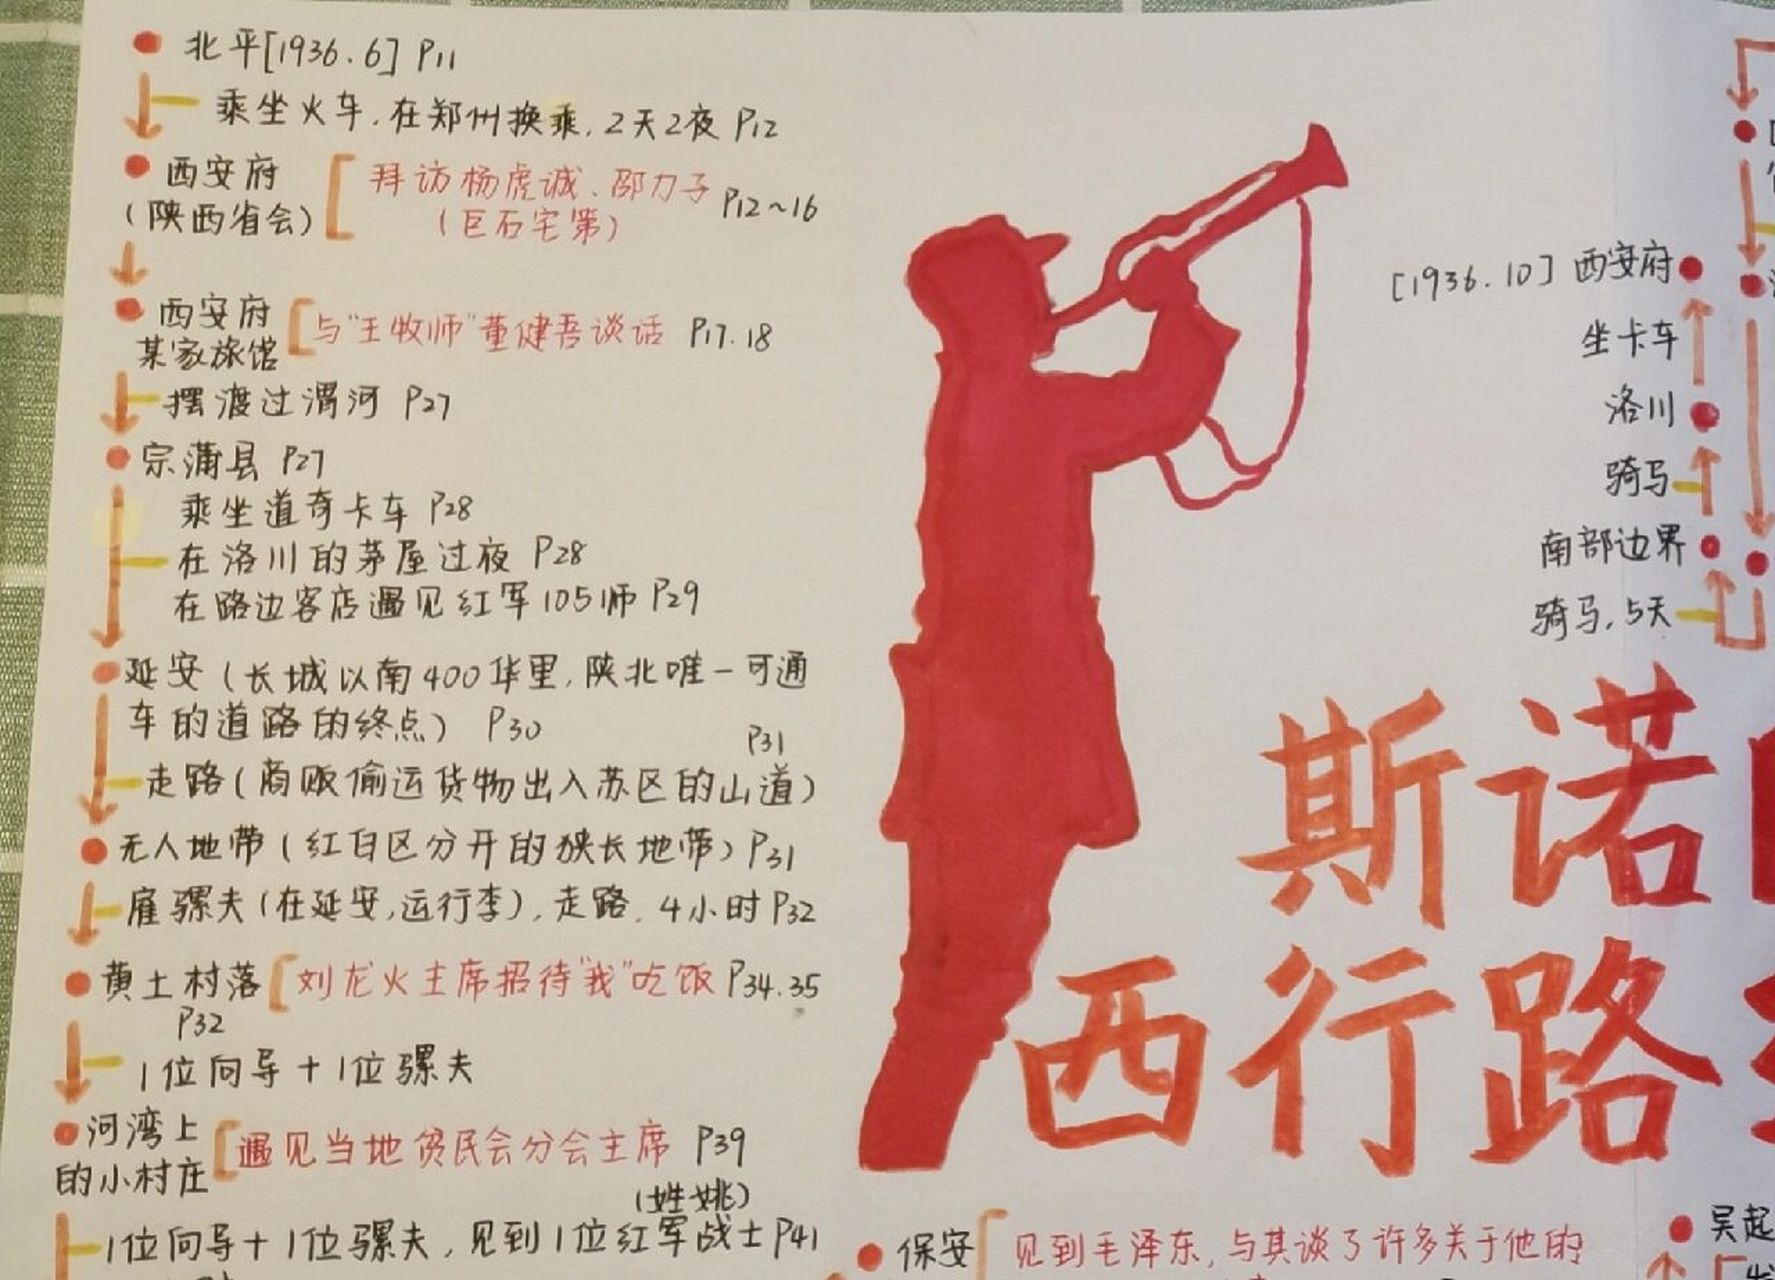 北平[1936.6] P11
乘坐火车,在郑州换乘,2天2夜 P12
西安府
(陕西省会)
拜访杨虎诚、邵力子
(巨石宅第)
P12~16
西安府
某家旅馆
与"王牧师"董健吾谈话 P17.18
摆渡过渭河 P27
宗蒲县 P27
乘坐道奇卡车 P28
在洛川的茅屋过夜 P28
在路边客店遇见红军105师 P29
延安(长城以南400华里,陕北唯一可通
车的道路的终点) P30
P31
走路(商贩偷运货物出入苏区的山道)
无人地带(红白区分开的狭长地带) P31
雇骡夫(在延安,运行李),走路,4小时 P32
黄土村落
P32
刘龙火主席招待"我"吃饭 P34.35
1位向导+1位骡夫
河湾上
的小村庄
遇见当地贫民会分会主席 P39
(姓姚)
1位向导+1位骡夫,见到1位红军战士 P41
[1936.10] 西安府
坐卡车
洛川
骑马
南部边界
骑马,5天
斯诺
西行路
保安
见到毛泽东,与其谈了许多关于他的
吴起